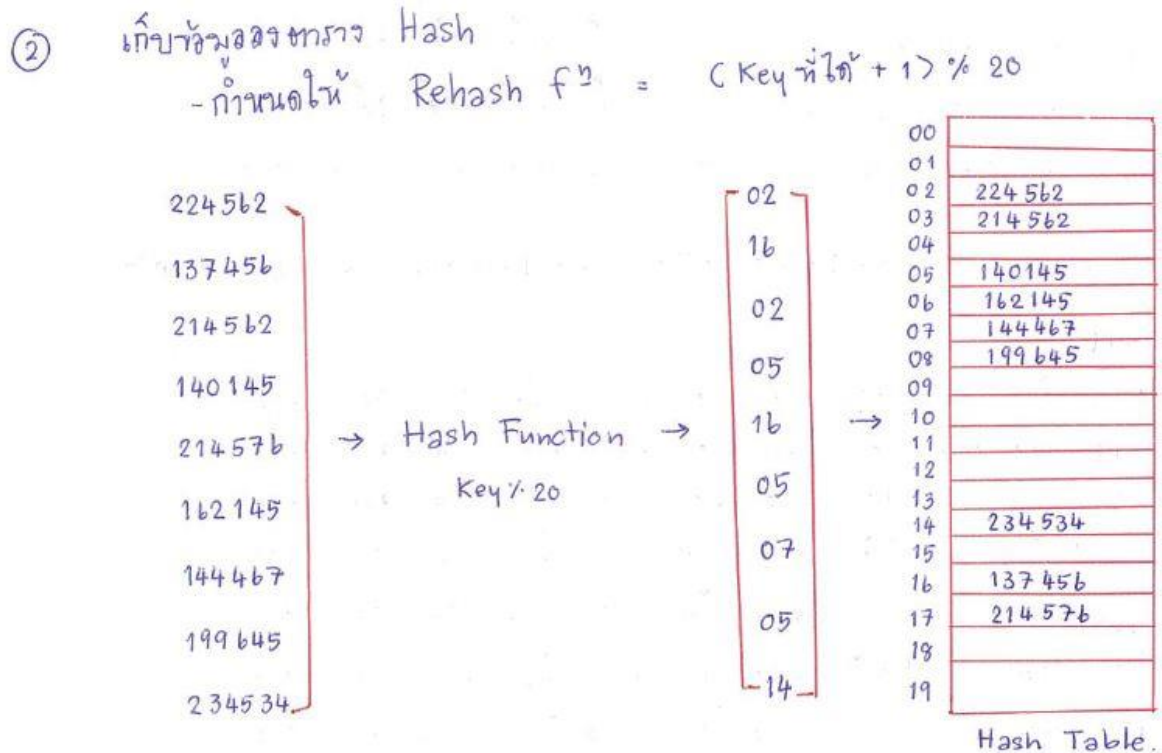 ② เก็บข้อมูลลงตาราง Hash
- กำหนดให้ Rehash fⁿ = (Key ที่ได้ + 1) % 20
224562
137456
214562
140145
214576
162145
144467
199645
234534
→ Hash Function →
Key % 20
02
16
02
05
16
05
07
05
14
→
00
01
02 224562
03 214562
04
05 140145
06 162145
07 144467
08 199645
09
10
11
12
13
14 234534
15
16 137456
17 214576
18
19
Hash Table.